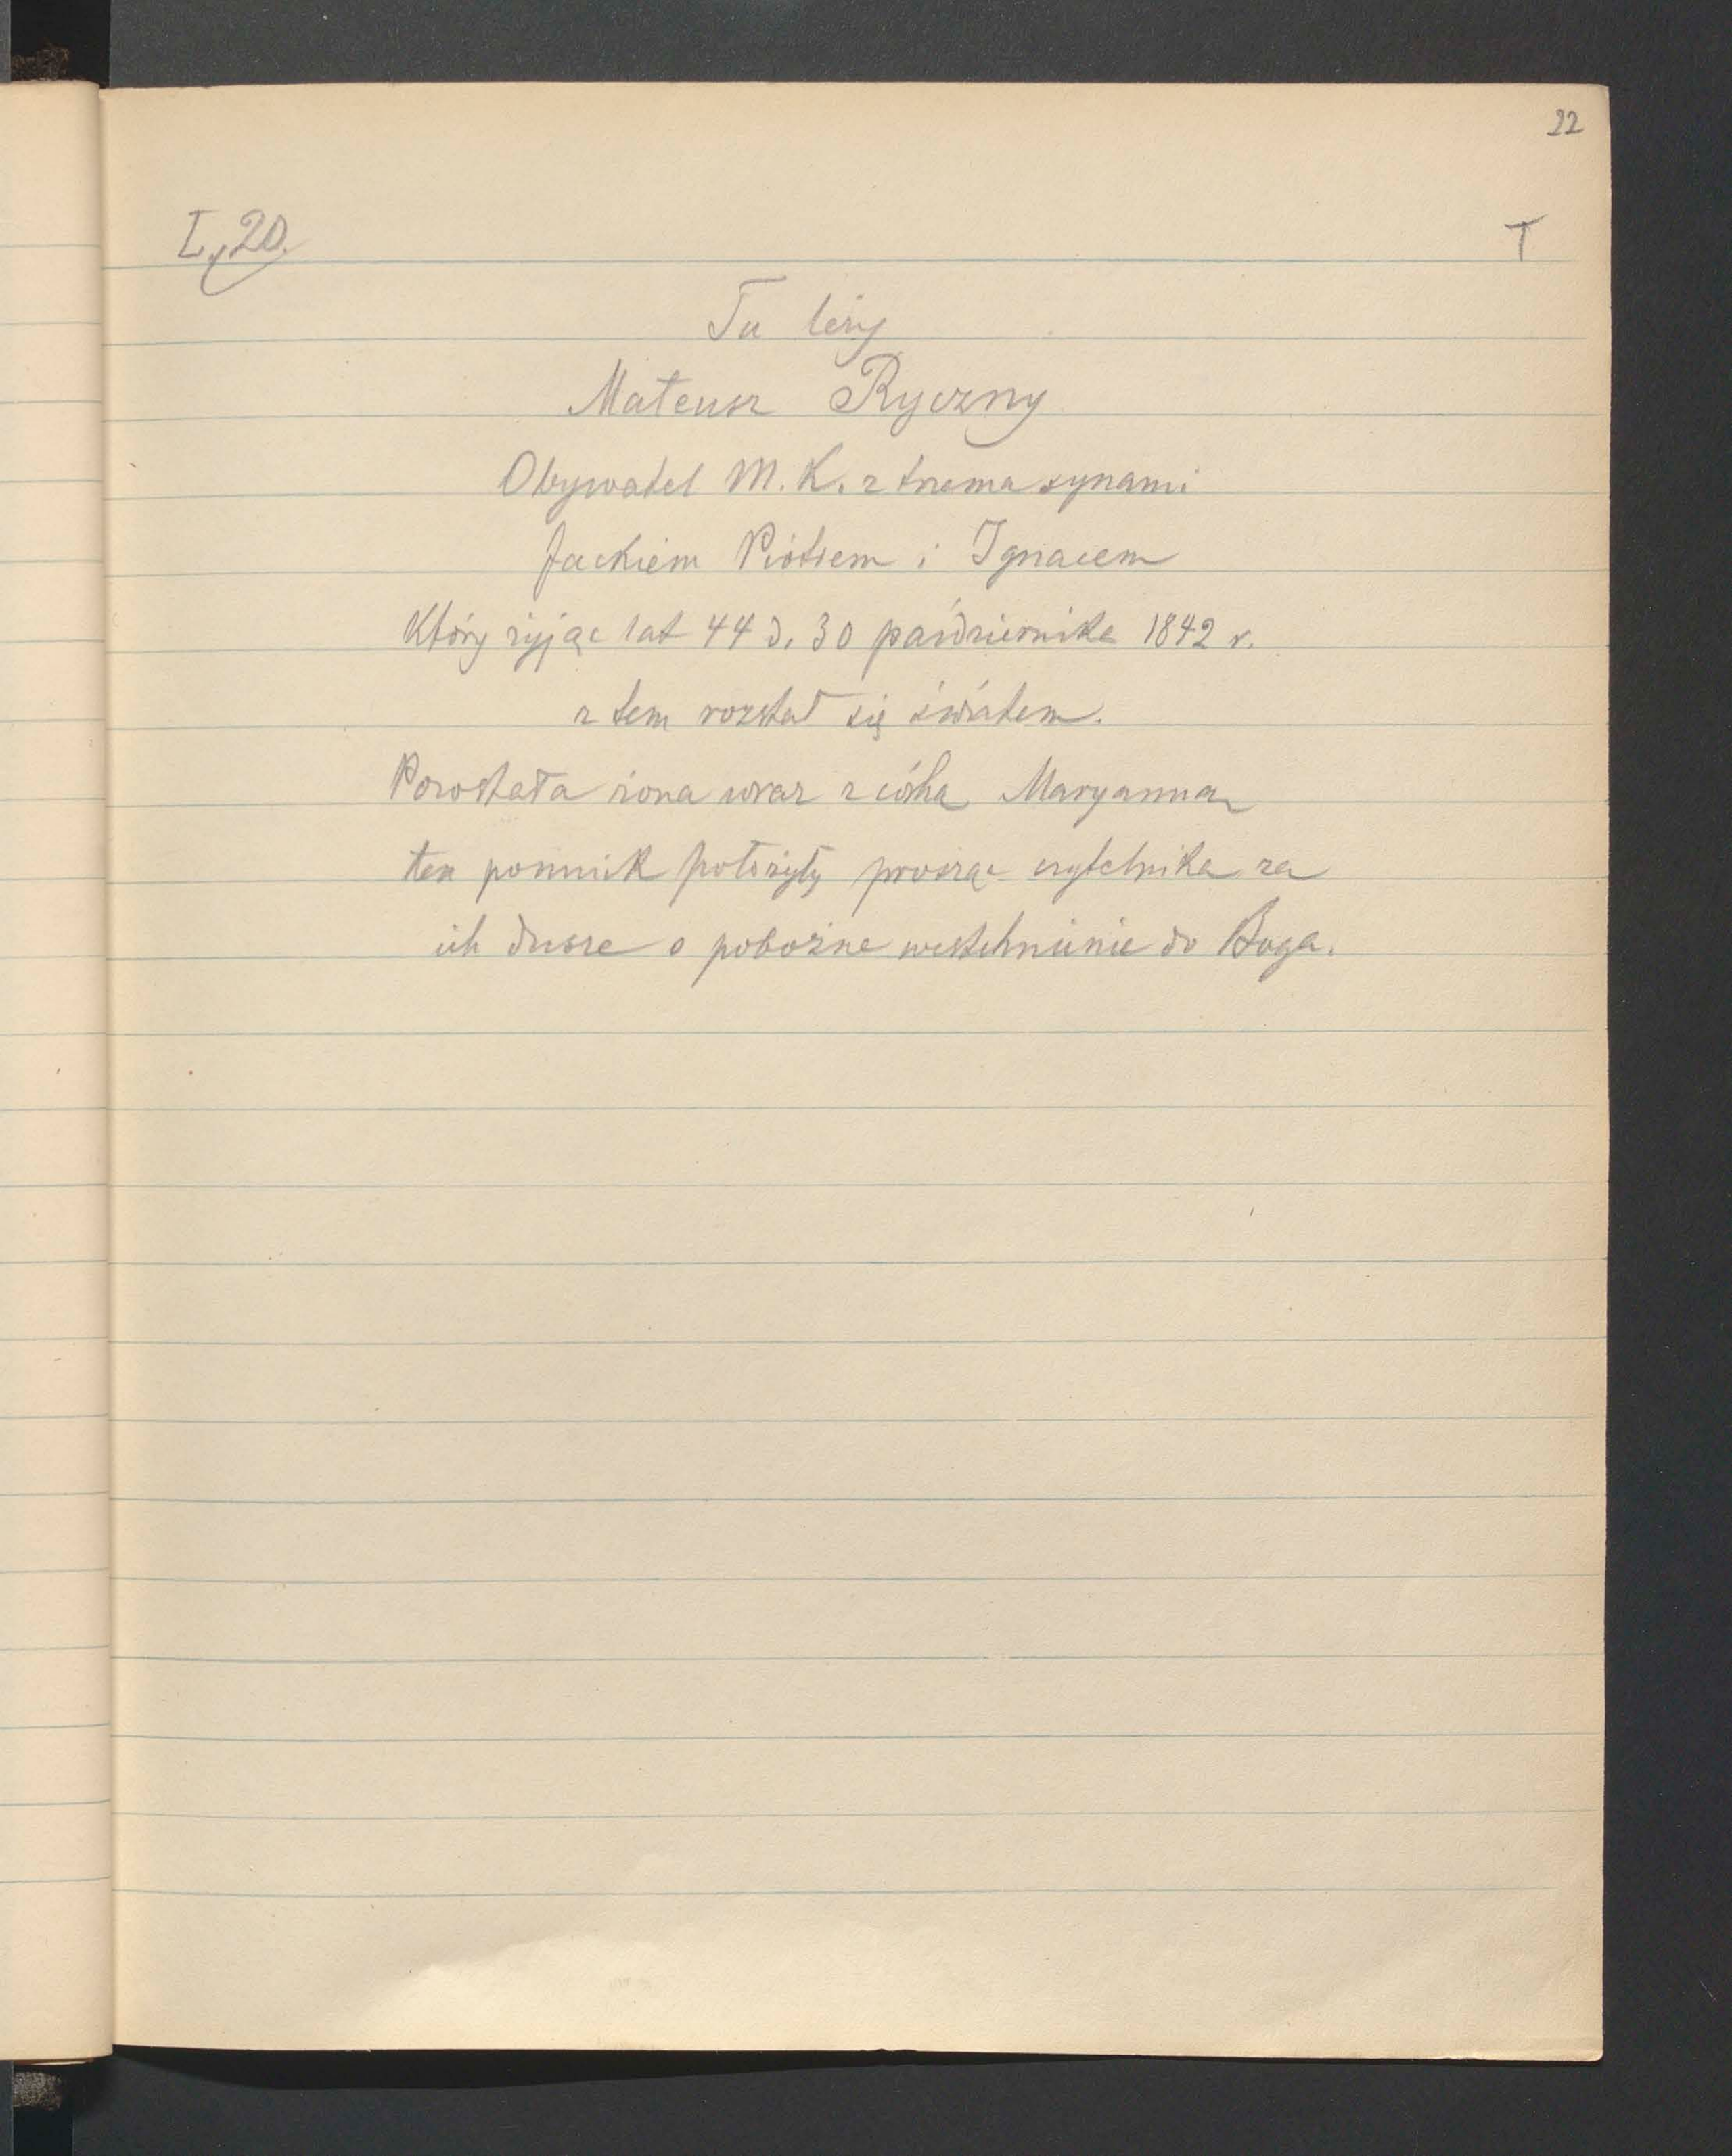 22
I, 20.
T
Tu leży
Mateusz Ryczny
Obywatel M. K. z trzema synami
Jackiem Piótrem i Ignacem
Który żyjąc lat 44 d. 30 października 1842 r.
z tem rozstał się światem.
Pozostała żona wraz z córką Maryanną
ten pomnik położyły prosząc czytelnika za
ich dusze o pobożne westchnienie do Boga.